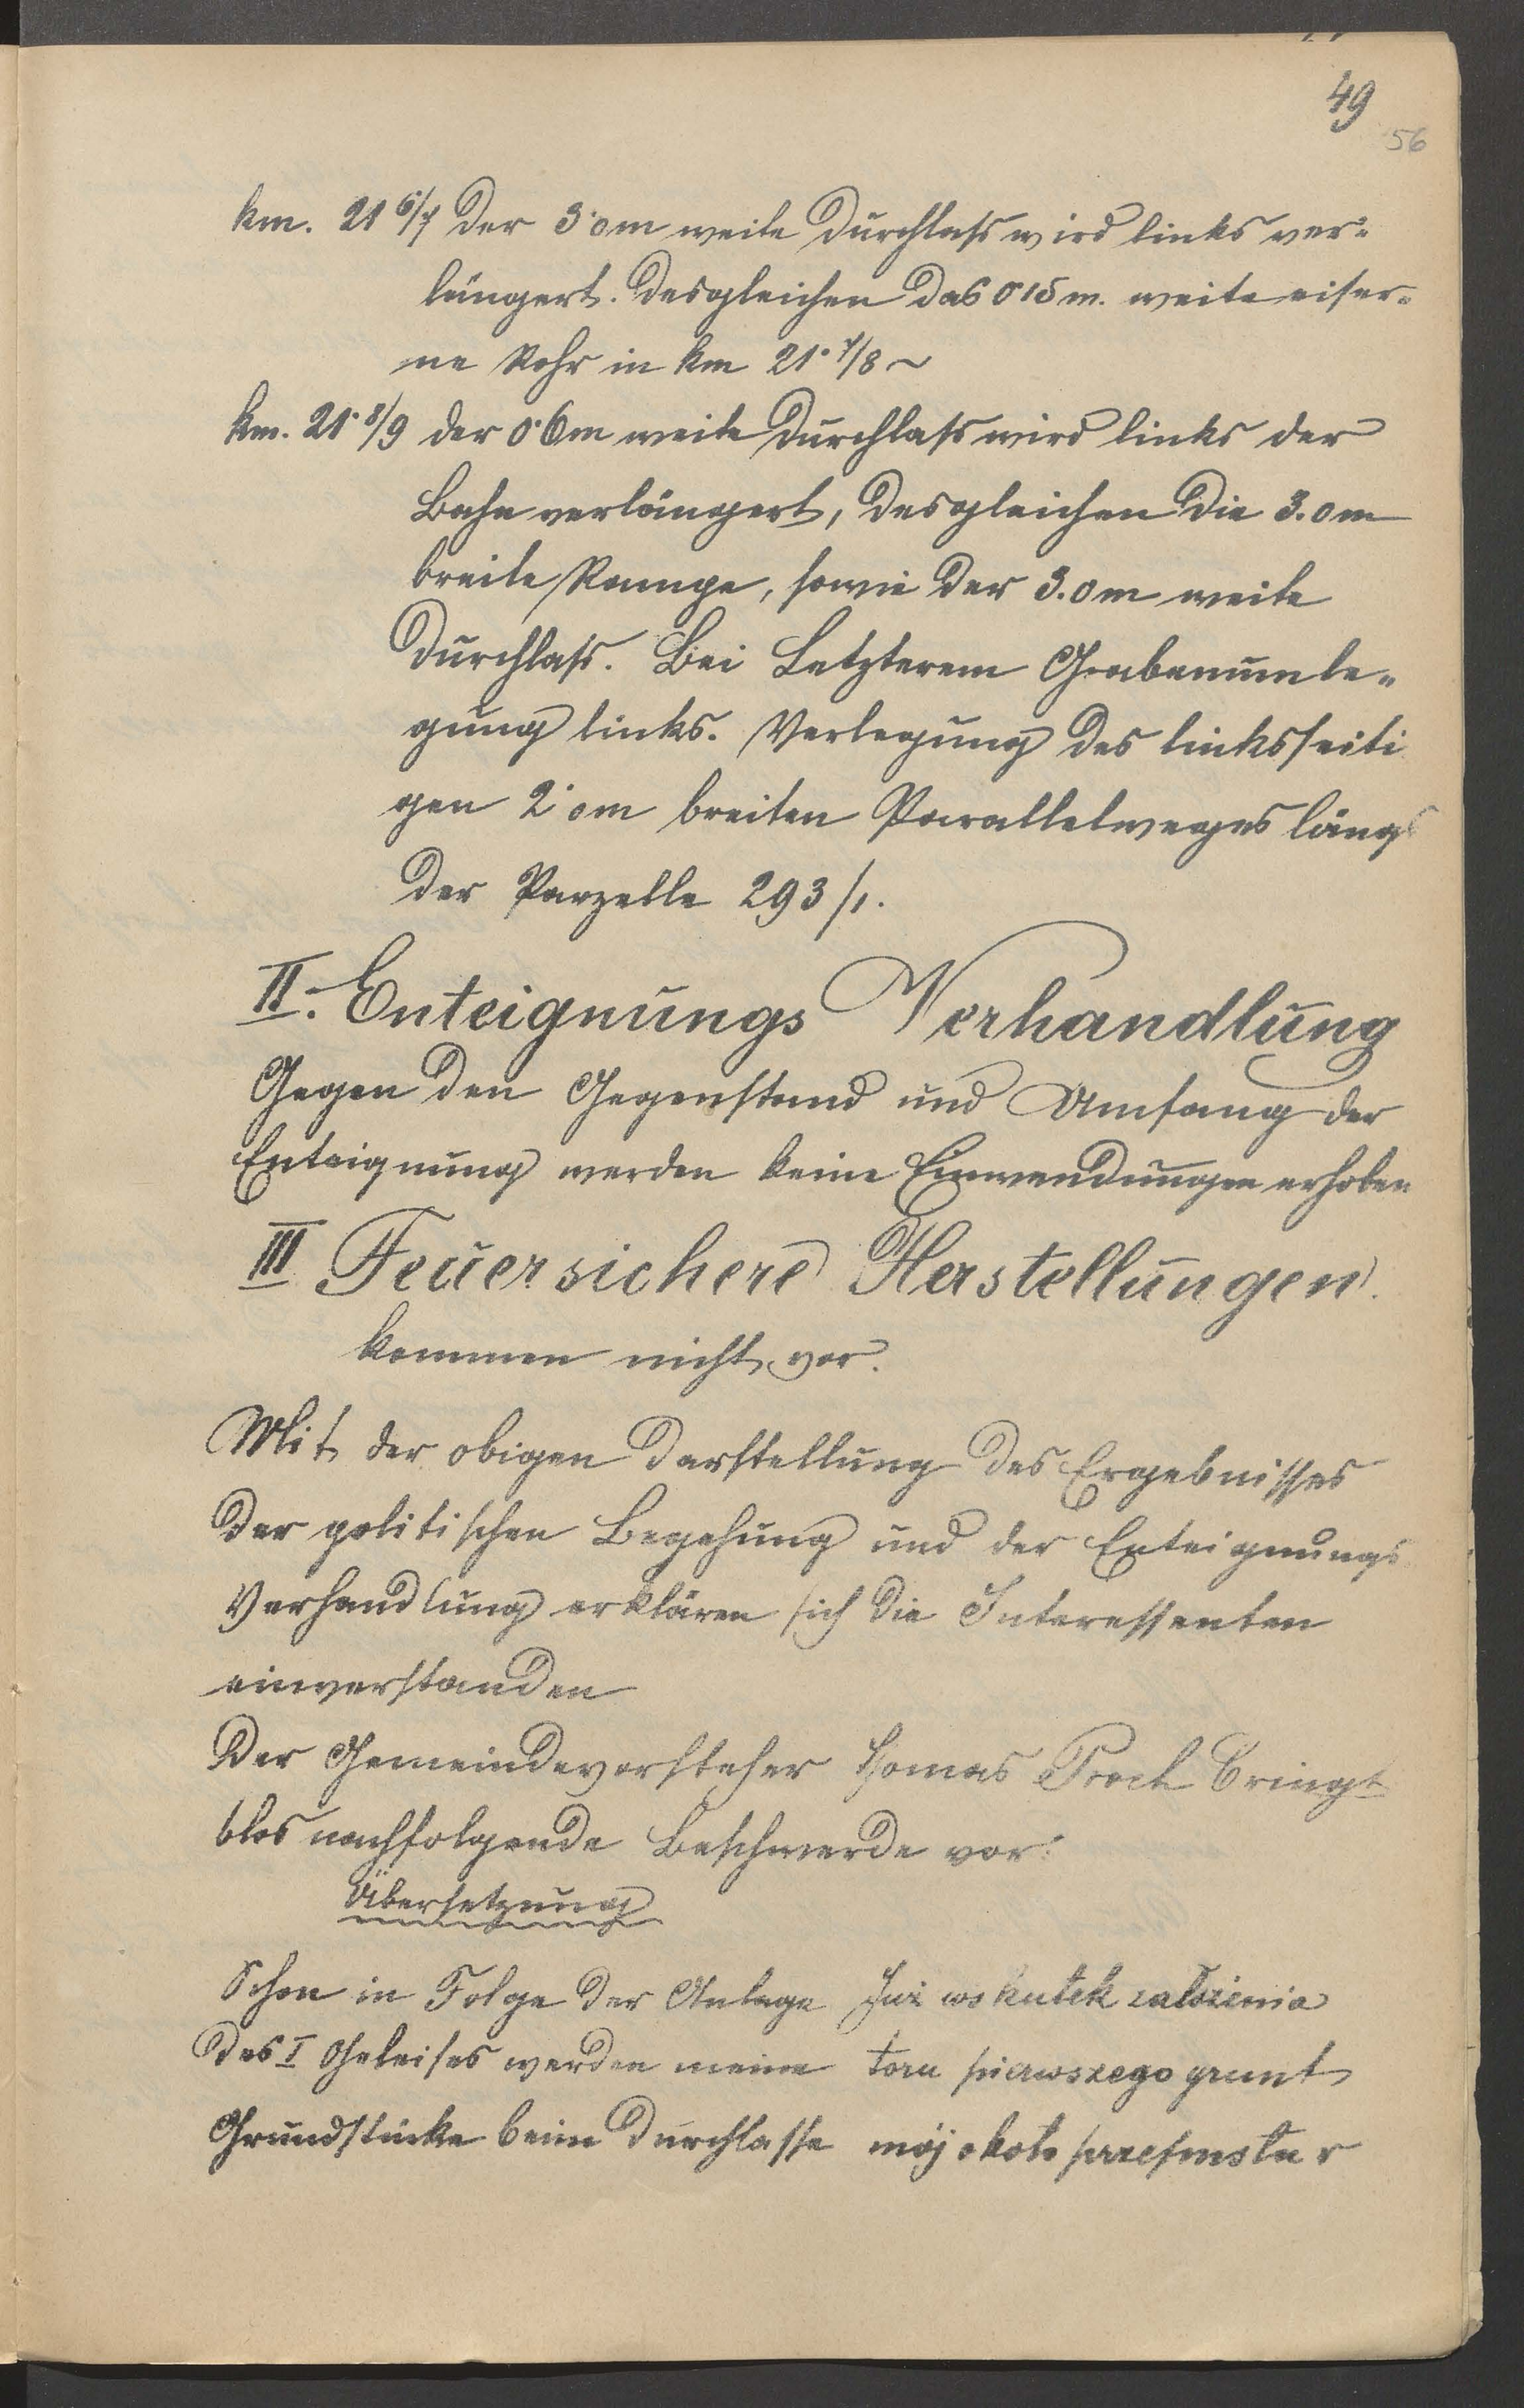 49
56
km. 21 6/7 der 3·0m weite Durchlass wird links ver=
längert. Desgleichen das 0·15 m. weite eiser=
ne Rohr in km 21·7/8 ~
km. 21·8/9 der 0·6m weite Durchlass wird links der
Bahn verlängert, desgleichen die 3.0m
breite Rampe, sowie der 3.0m weite
Durchlass. Bei Letzterem Grabenumle=
gung links. Verlegung des linksseiti
gen 2·0m breiten Parallelweges längs
der Parzelle 293/1.
II. Enteignungs Verhandlung
Gegen den Gegenstand und Umfang der
Enteignung werden keine Einwendungen erhoben
III Feuersichere Herstellungen.
kommen nicht vor.
Mit der obigen Darstellung des Ergebnisses
der politischen Begehung und der Enteignungs
Verhandlung erklären sich die Interessenten
einverstanden
Der Gemeindevorsteher Thomas Proch bringt
blos nachfolgende Beschwerde vor:
Übersetzung
Schon in Folge der Anlage Już wskutek założenia
des I Geleises werden meine toru pierwszego grunt
Grundstücke beim Durchlasse mój około przepustu v